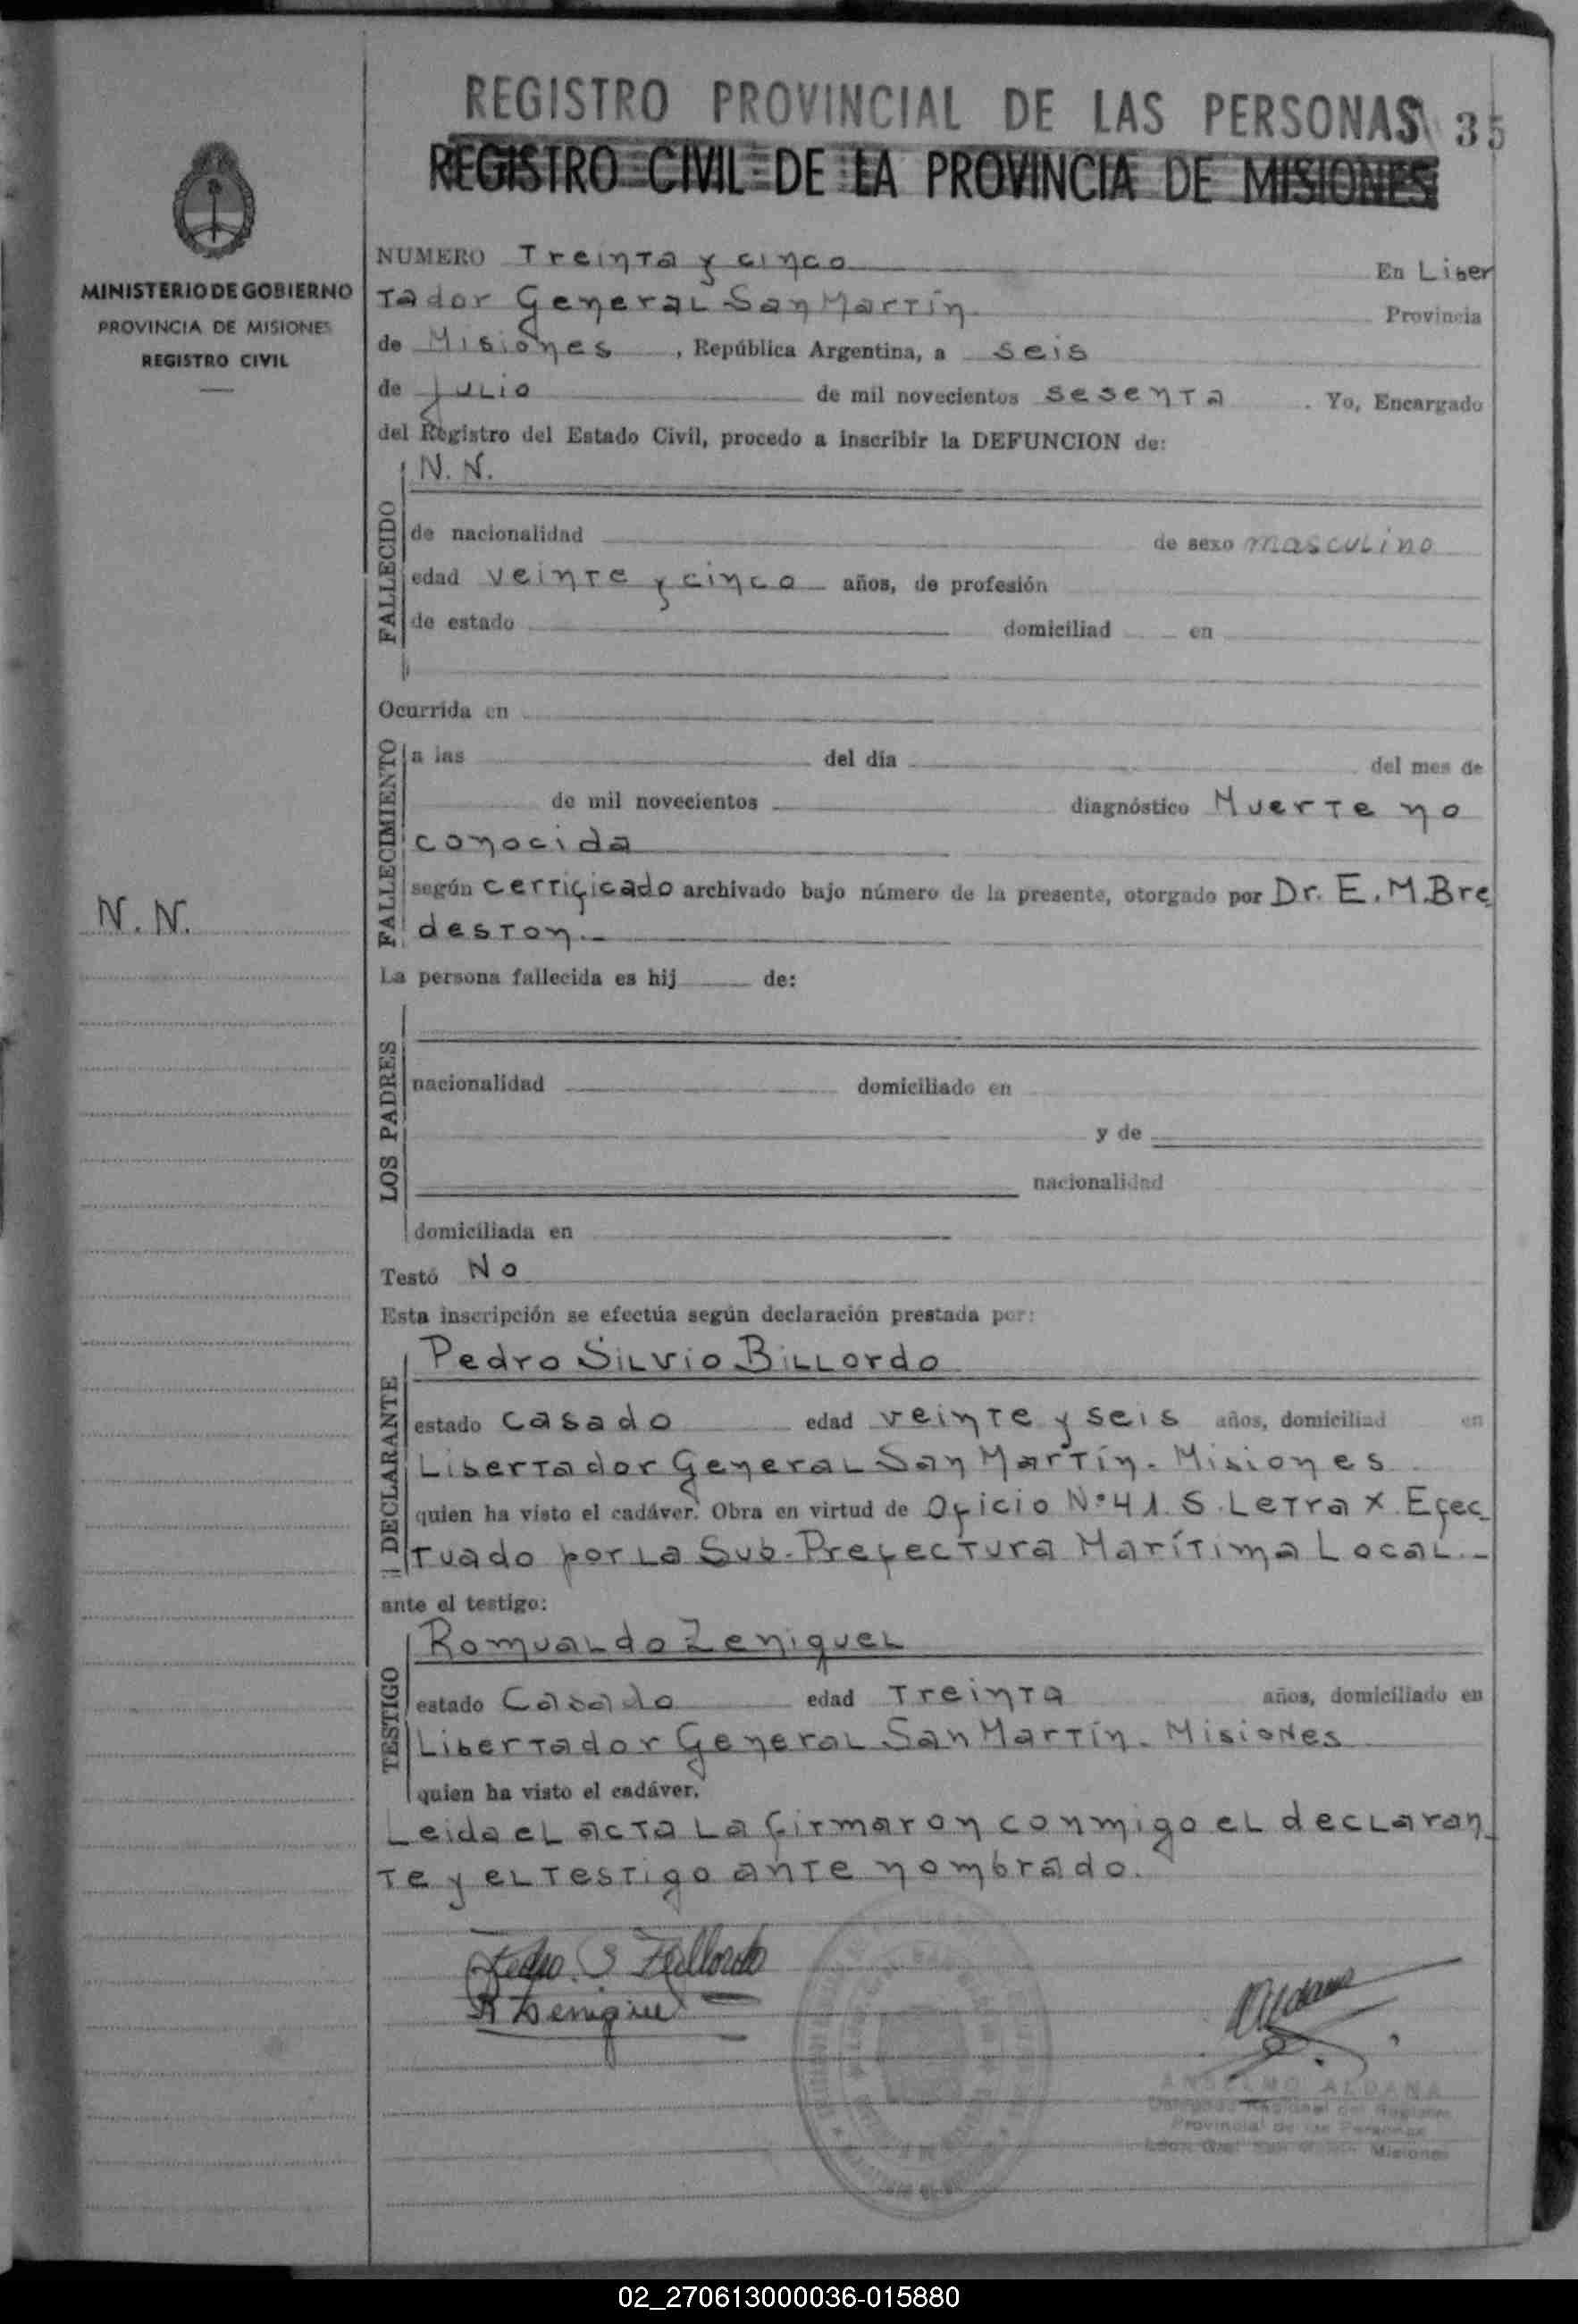 REGISTRO PROVINCIAL DE LAS PERSONAS 35
REGISTRO CIVIL DE LA PROVINCIA DE MISIONES
MINISTERIO DE GOBIERNO
PROVINCIA DE MISIONES
REGISTRO CIVIL
NUMERO Treinta y cinco En Liber
tador General San Martín Provincia
de Misiones, República Argentina, a seis
de julio de mil novecientos sesenta. Yo, Encargado
del Registro del Estado Civil, procedo a inscribir la DEFUNCION de:
FALLECIDO
N. N.
de nacionalidad de sexo masculino
edad veinte y cinco años, de profesión
de estado domiciliad en
Ocurrida en
FALLECIMIENTO
a las del día del mes de
de mil novecientos diagnóstico Muerte no
conocida
según certificado archivado bajo número de la presente, otorgado por Dr. E. M. Bre
deston.-
N. N.
La persona fallecida es hij de:
LOS PADRES
nacionalidad domiciliado en
y de
nacionalidad
domiciliada en
Testó No
Esta inscripción se efectúa según declaración prestada por:
DECLARANTE
Pedro Silvio Billordo
estado casado edad veinte y seis años, domiciliad en
Libertador General San Martín. Misiones
quien ha visto el cadáver. Obra en virtud de Oficio Nº 41. S. Letra X. Efec
tuado por la Sub-Prefectura Marítima Local.-
ante el testigo:
TESTIGO
Romualdo Zeniquel
estado Casado edad Treinta años, domiciliado en
Libertador General San Martín. Misiones
quien ha visto el cadáver.
Leida el acta la firmaron conmigo el declaran
te y el testigo ante nombrado.
Pedro S Billordo
R Zeniquel
ANSELMO ALDANA
Delegado Regional del Registro
Provincial de las Personas
Misiones
02_270613000036-015880